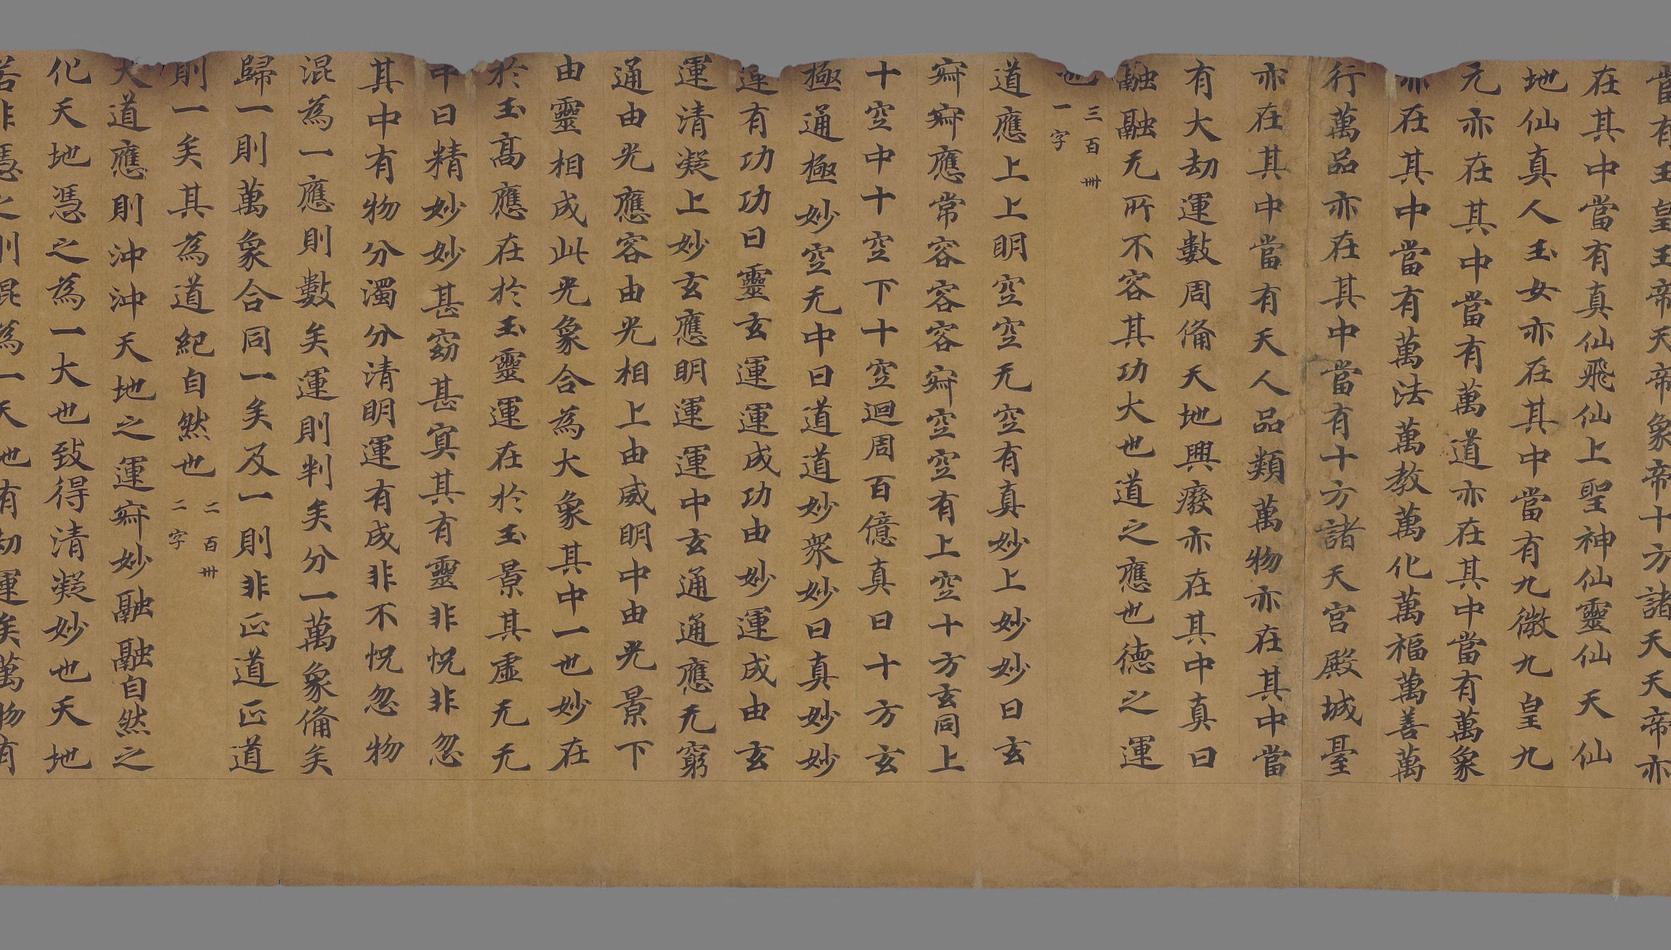 當有玉皇玉帝天帝象帝十方諸天天帝亦
在其中當有真仙飛仙上聖神仙靈仙天仙
地仙真人玉女亦在其中當有九微九皇九
元亦在其中當有萬道亦在其中當有萬象
亦在其中當有萬法萬教萬化萬福萬善萬
行萬品亦在其中當有十方諸天宮殿城臺
亦在其中當有天人品類萬物亦在其中當
有大劫運數周俻天地興癈亦在其中真曰
融融无所不容其功大也道之應也德之運
也
三百卌
一字
道應上上明空空无空有真妙上妙妙曰玄
寂寂應常容容容寂空空有上空十方玄同上
十空中十空下十空迴周百億真曰十方玄
極通極妙空无中曰道道妙衆妙曰真妙妙
運有功功曰靈玄運運成功由妙運成由玄
運清凝上妙玄應明運運中玄通通應无窮
通由光應容由光相上由威明中由光景下
由靈相成此光象合為大象其中一也妙在
於玉高應在於玉靈運在於玉景其虛无无
中曰精妙妙甚窈甚寞其有靈非恍非忽
其中有物分濁分清明運有成非不恍忽物
混為一應則數矣運則判矣分一萬象俻矣
歸一則萬象合同一矣及一則非正道正道
則一矣其為道紀自然也
二百卌
二字
大道應則沖沖天地之運寂妙融融自然之
化天地憑之為一大也致得清凝妙也天地
若非憑之則混為一天地有劫運矣萬物有